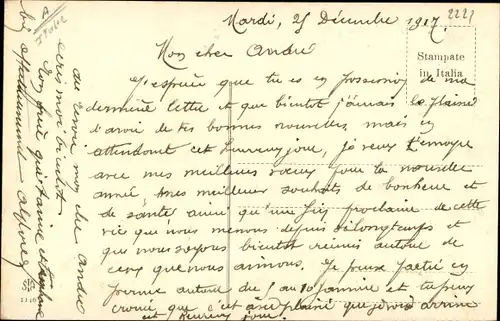 2221
Mardi, 25 Décembre 1917.
Mon cher André
J'espère que tu es en possession de ma
dernière lettre et que bientôt j'aurais le plaisir
d'avoir de tes bonnes nouvelles, mais en
attendant cet heureux jour, je veux t'envoyer
avec mes meilleurs vœux pour la nouvelle
année, mes meilleurs souhaits de bonheur et
de santé ainsi qu'une fin prochaine de cette
vie que nous menons depuis si longtemps et
que nous soyons bientôt réunis autour de
ceux que nous aimons. Je pense partir en
permie autour du 5 au 10 janvier et tu peux
croire que c'est avec plaisir que je vois arriver
cet heureux jour.
Stampate
in Italia
au revoir mon cher André
écris moi bientôt
Ton frère qui t'aime et t'embrasse
bien affectueusement